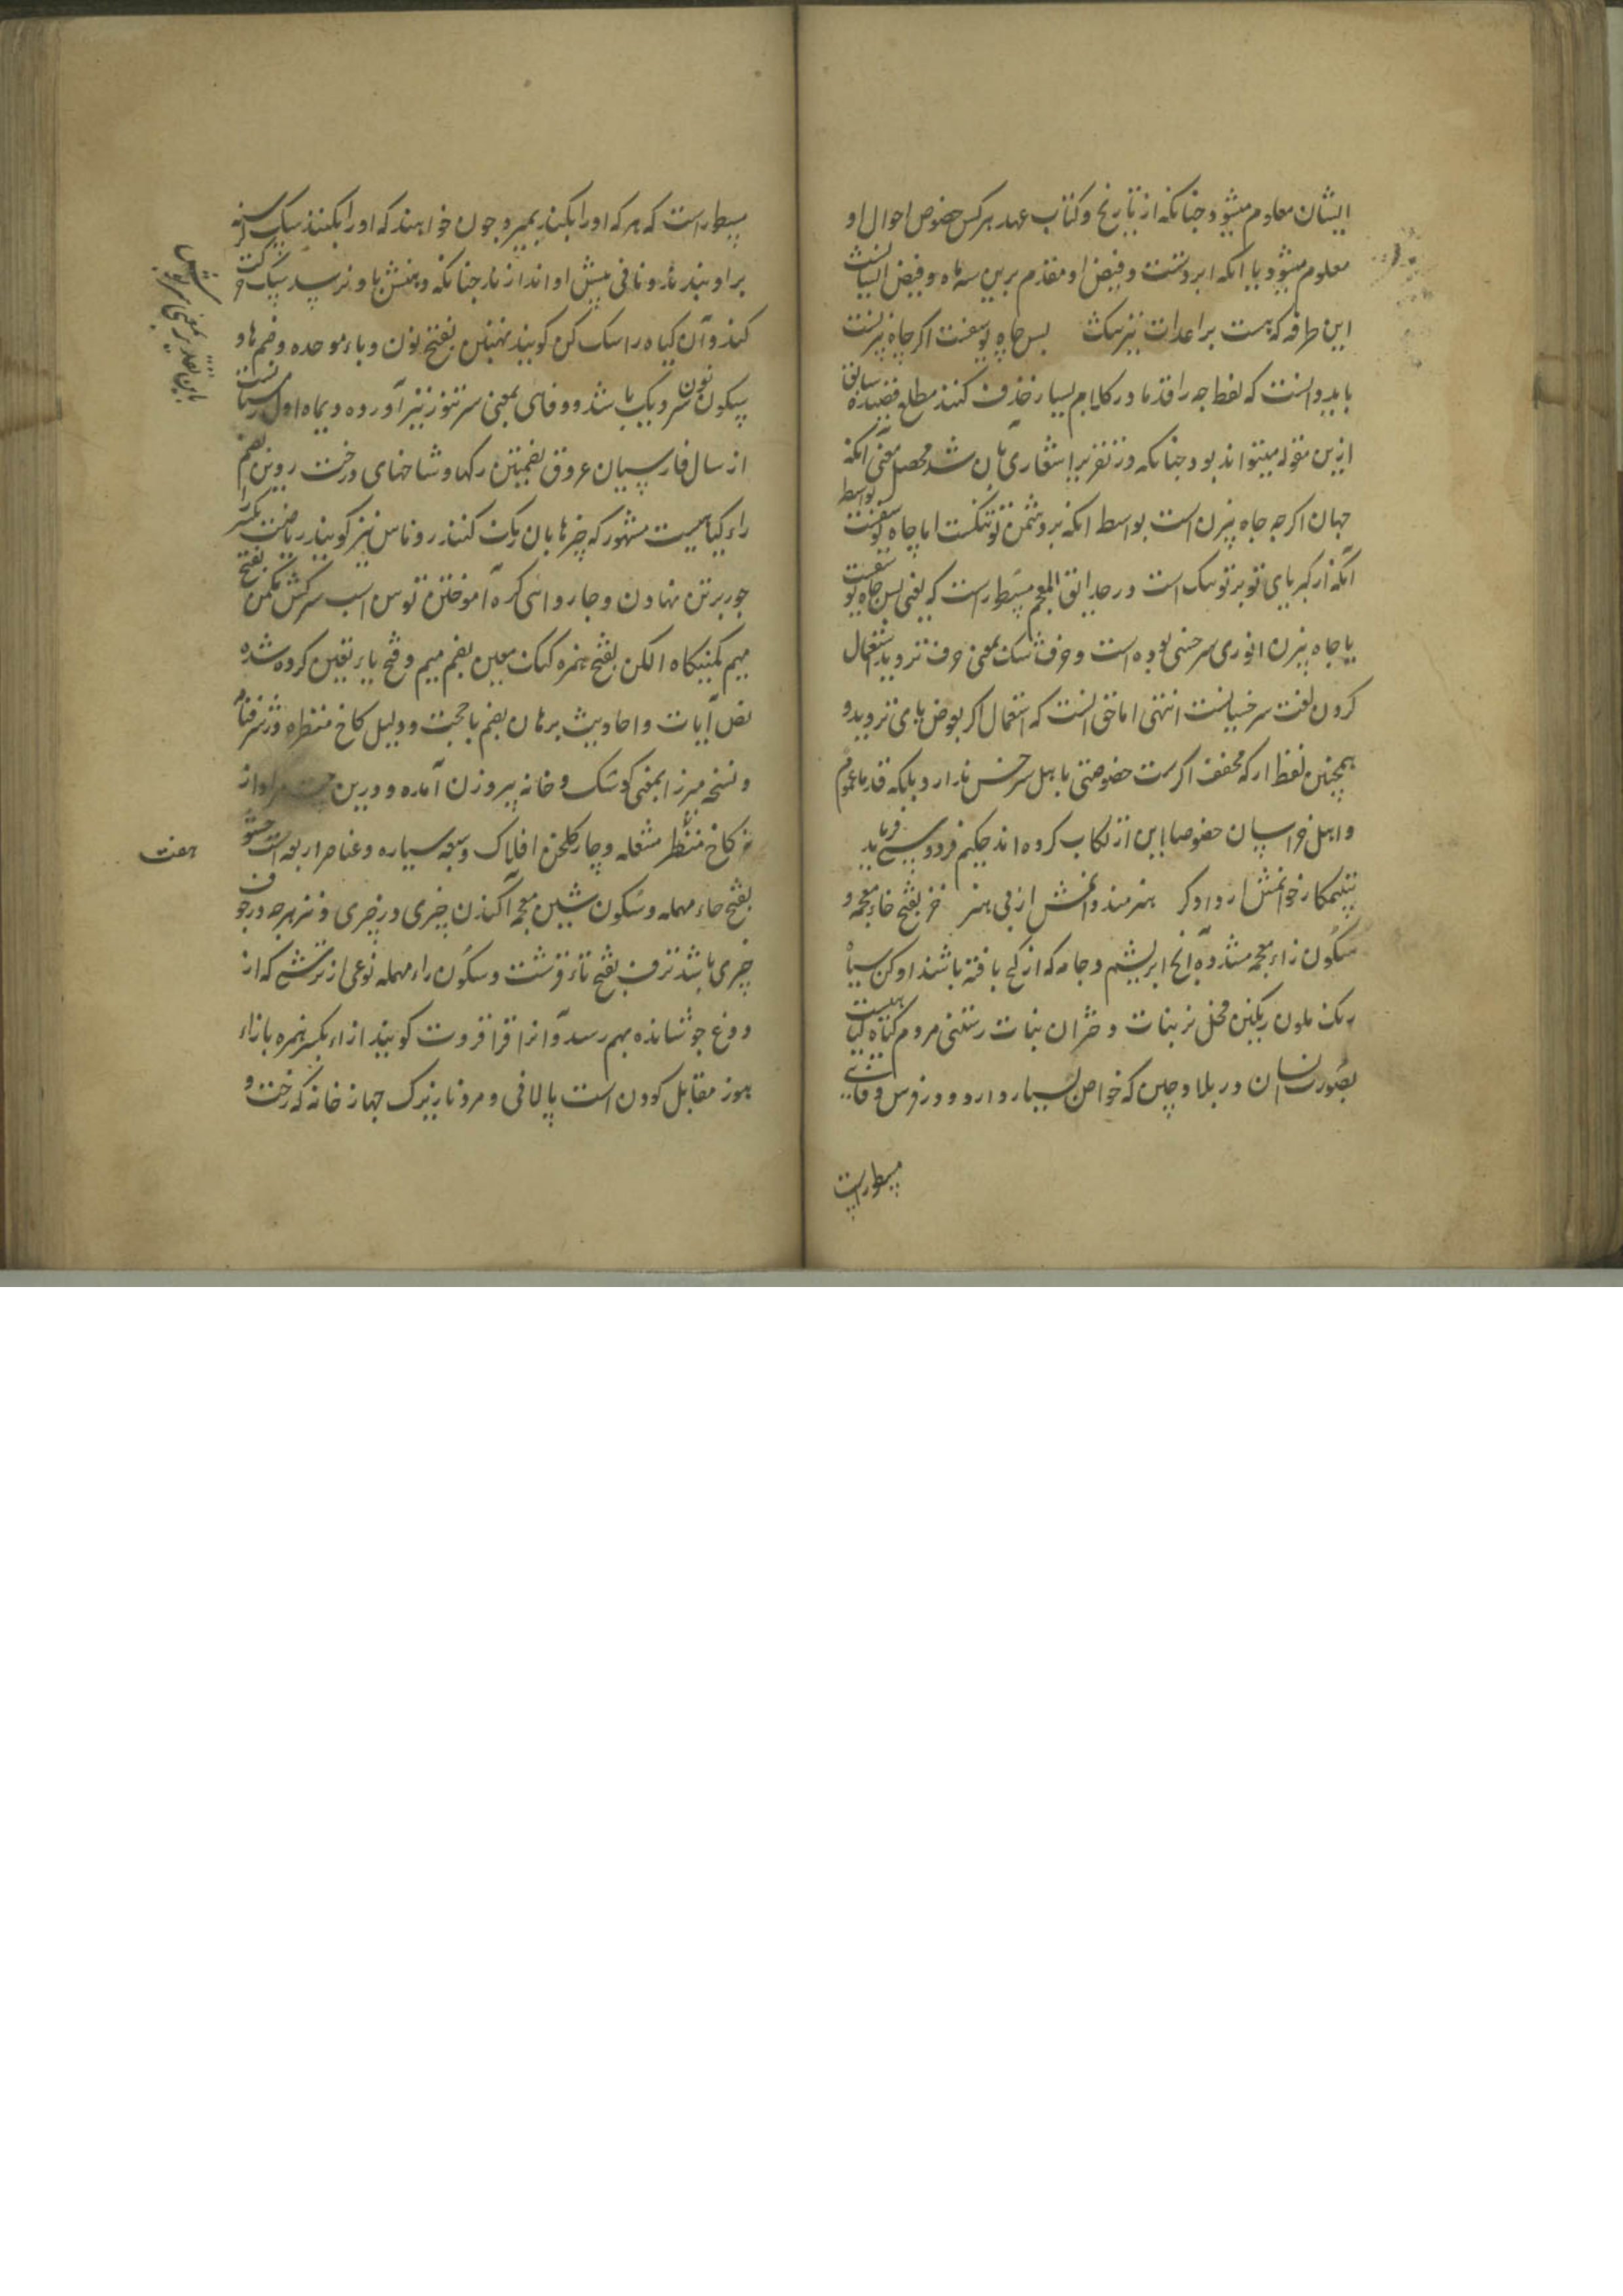 ایشان معلوم میشود چنانکه از تاریخ و کتاب عهد هر کس خصوص احوال او
معلوم میشود یا آنکه ابر دستت و فیض او مقدم برین سه ماه و فیض ایشانست
این طرفه که هست بر اعدات نیز تنگ پس چاه یوسفست اگر چاه بیژنست
باید دانست که لفظ چه را قدما در کلام بسیار حذف کنند مطلع قصیده سابق
ازین مقوله میتواند بود چنانکه در تقریر اشعاری بآن شد محصل معنی آنکه
جهان اگرچه چاه بیژن است بواسطه آنکه بر دشمن تو تنگست اما چاه یوسفست بواسطه
آنکه از کبریای تو بر تو تنگ است در حدایق المعجم مسطور است که یعنی پس چاه یوسفست
یا چاه بیژن انوری سرخسی بوده است و حرف شک بمعنی حرف تردید استعمال
کردن لغت سرخسیانست انتهی اما حق آنست که استعمال اگر بعوض یای تردید و
همچنین لفظ ار که مخفف اگرست خصوصیتی باهل سرخس ندارد بلکه قدما عموم
و اهل خراسان خصوصا این ارتکاب کرده اند حکیم فردوسی فرماید
ستمکار خوانمش ار دادگر هنرمند دانمش ار بی هنر خز بفتح خاء معجمه و
سکون زاء معجمه مشدده آنچ ابریشم و جامه که از کج بافته باشند ادکن سیاه
رنگ ملون رنگین مخمل نر بنات و خزان نبات رستنی مردم گیاه گیاهیست
بصورت انسان در بلاد چین که خواص بسیار دارد و در فرس وفائی
مسطور است
مسطور است که هر که او را بکند بمیرد و چون خواهند که او را بکنند سک گرسنه
بر او بندند و نانی پیش او اندازند چنانکه دهنش باو نرسد سک حرکت
کند و آن گیاه را سک کن گویند نهنبن بفتح نون و باء موحده و ضم ها و
سکون نون سر دیک باشد و وفائی بمعنی سر تنور نیز آورده دیماه اول زمستانست
از سال فارسیان عروق بضمتین رکها و شاخهای درخت روین بضم
راء گیاهیست مشهور که چیزها بآن رنگ کنند روناس نیز گویند ریاضت بکسر را
جور بر تن نهادن و چاروائی کره آموختن توسن اسب سرکش مکمن بفتح
میم کمینگاه الکن بفتح همزه کنک معین بضم میم و فتح یا تعیین کرده شده
نص آیات و احادیث برهان بضم با حجت و دلیل کاخ منظره در شرفنامه
و نسخه میرزا بمعنی کوشک و خانه بیرون آمده و درین مراد از
نه کاخ منظر مشعله و چار گلخن افلاک و سبعه سیاره و عناصر اربعه است حشو
بفتح حاء مهمله و سکون شین معجمه آکندن چیزی در چیزی و نیز هرچه در جوف
چیزی باشد ترف بفتح تاء قرشت و سکون راء مهمله نوعی از ترشی که از
دوغ جوشانده بهم رسد و آنرا قراقروت گویند ازاء بکسر همزه بازاء
هوز مقابل کودن است پالانی و مرد نازیرک جهاز خانه که رخت و
هفت